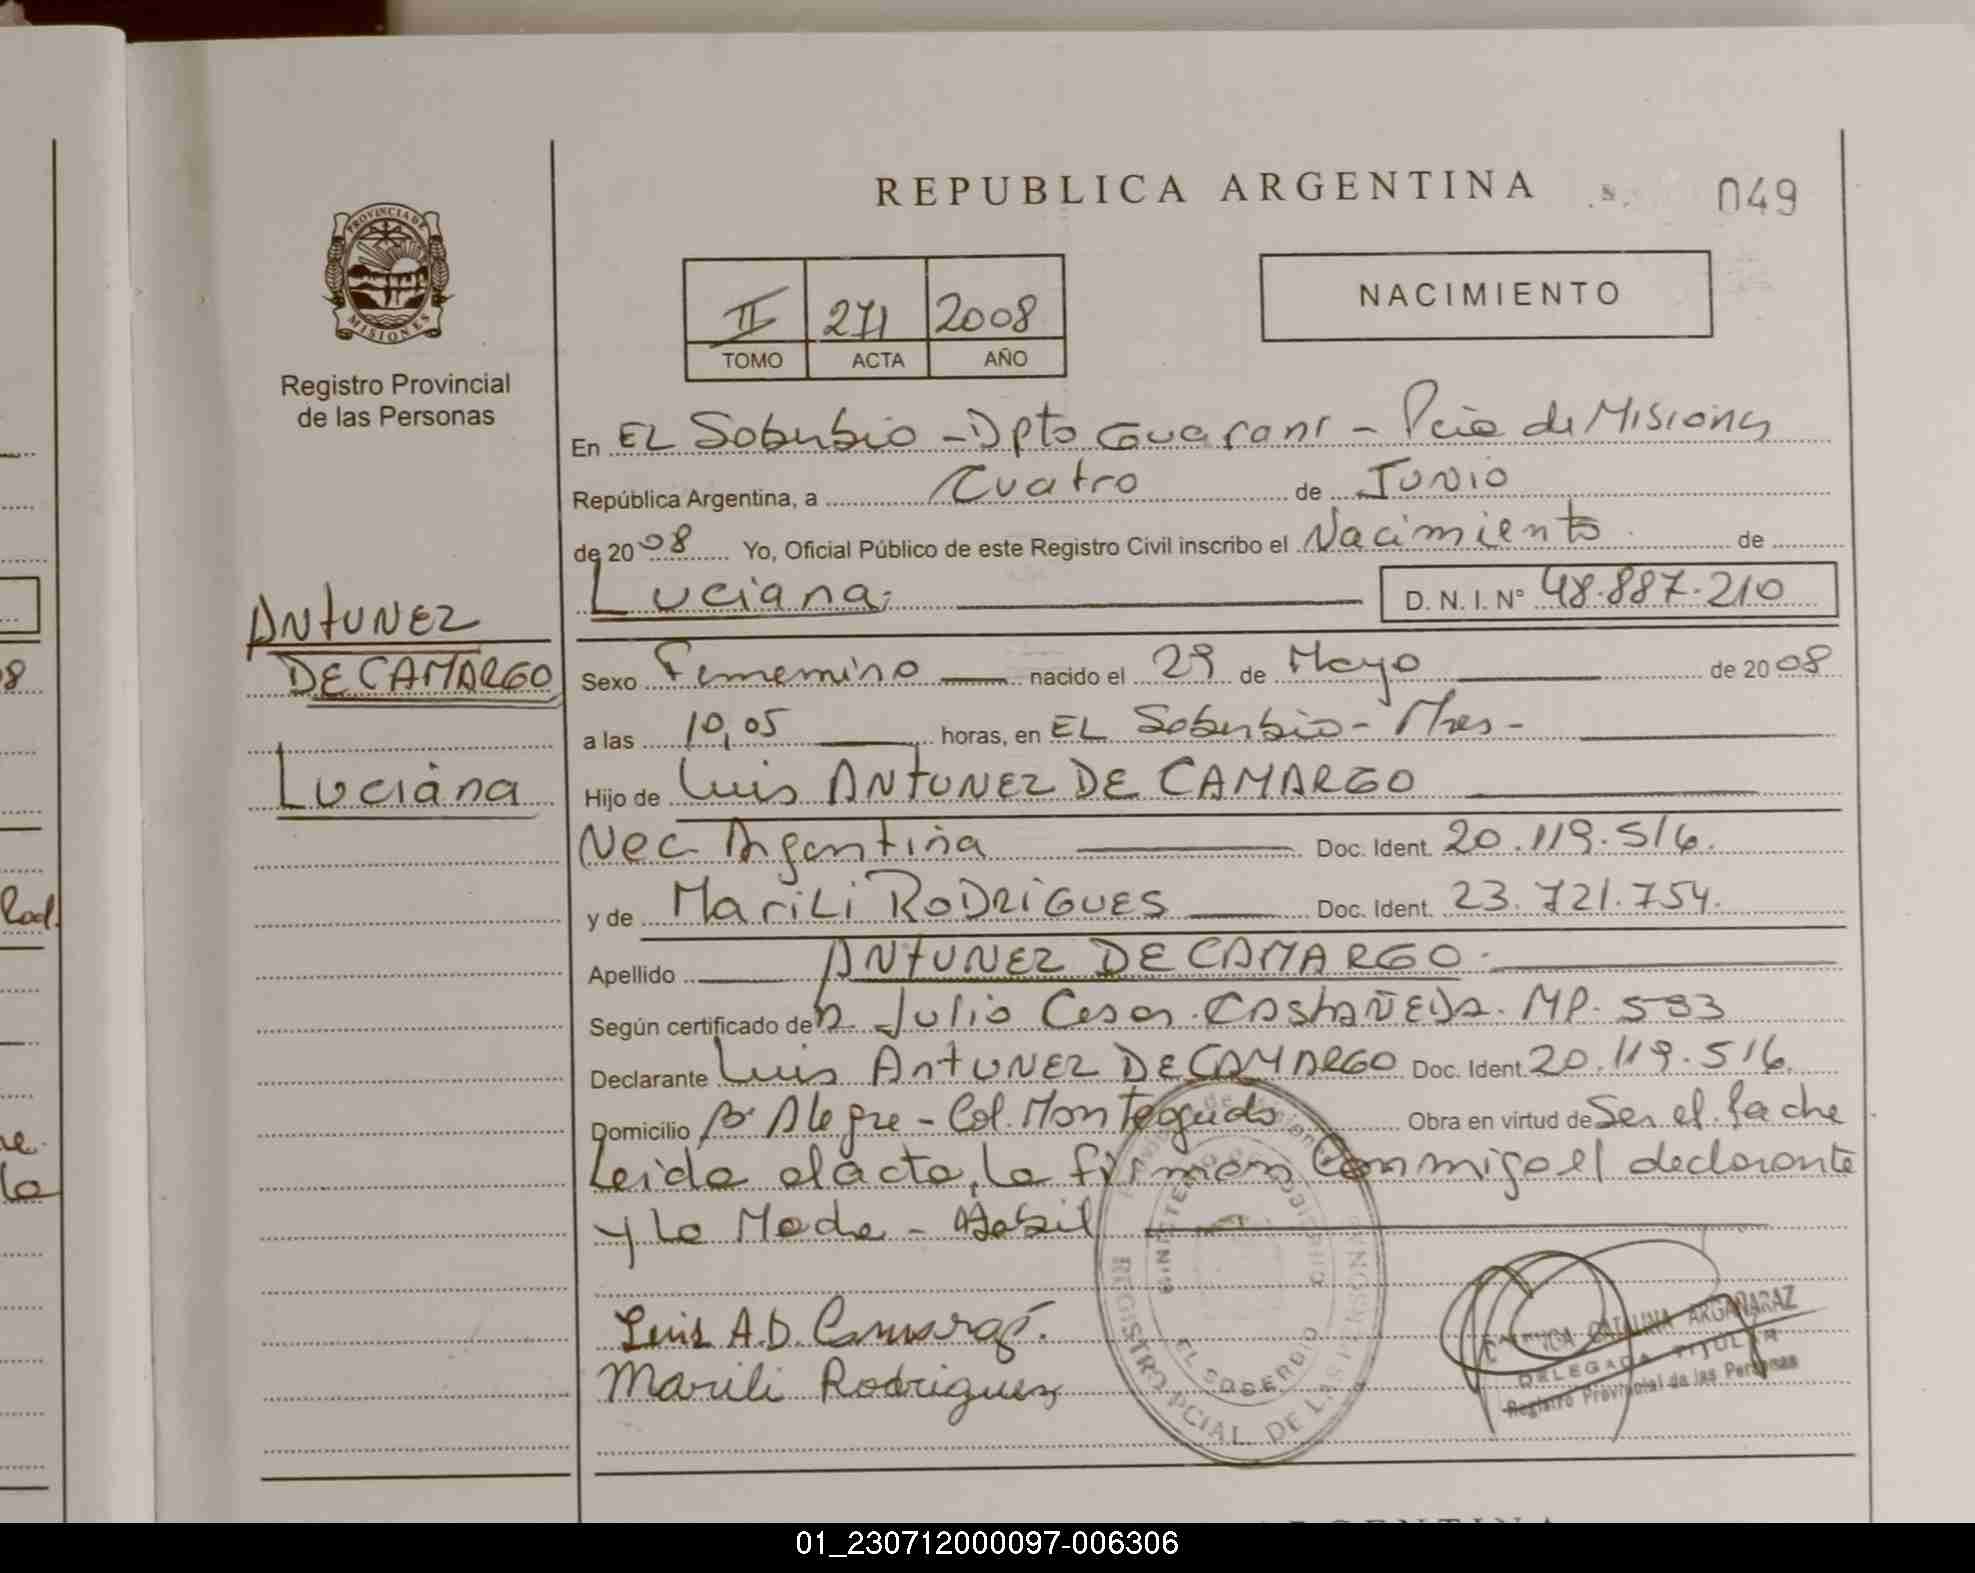 REPUBLICA ARGENTINA
049
PROVINCIA DE
MISIONES
Registro Provincial
de las Personas
II 271 2008
TOMO ACTA AÑO
NACIMIENTO
En EL Soberbio - Dpto Guarani - Pcia de Misiones
República Argentina, a Cuatro de Junio
de 2008 Yo, Oficial Público de este Registro Civil inscribo el Nacimiento de
Luciana D. N. I. N° 48.887.210
ANTUNEZ
DE CAMARGO
Luciana
Sexo Femenino nacido el 29 de Mayo de 2008
a las 10,05 horas, en EL Soberbio - Mnes -
Hijo de Luis ANTUNEZ DE CAMARGO
Nac Argentina Doc. Ident. 20.119.516.
y de Marili RODRIGUES Doc. Ident. 23.721.754.
Apellido ANTUNEZ DE CAMARGO.
Según certificado de Julio Cesar CASTAÑEDA. MP. 593
Declarante Luis ANTUNEZ DE CAMARGO Doc. Ident. 20.119.516
Domicilio B° Alegre - Col. Monteagudo Obra en virtud de Ser el Padre
Leida el acta, la firman Conmigo el declarante
y la Madre - Habil
Luis A.D. Camargo.
Marili Rodriguez
MINISTERIO DE GOBIERNO
EL SOBERBIO
REGISTRO PCIAL. DE LAS PERSONAS
CATALINA ARGAÑARAZ
DELEGADA TITULAR
Registro Provincial de las Personas
ARGENTINA
01_230712000097-006306